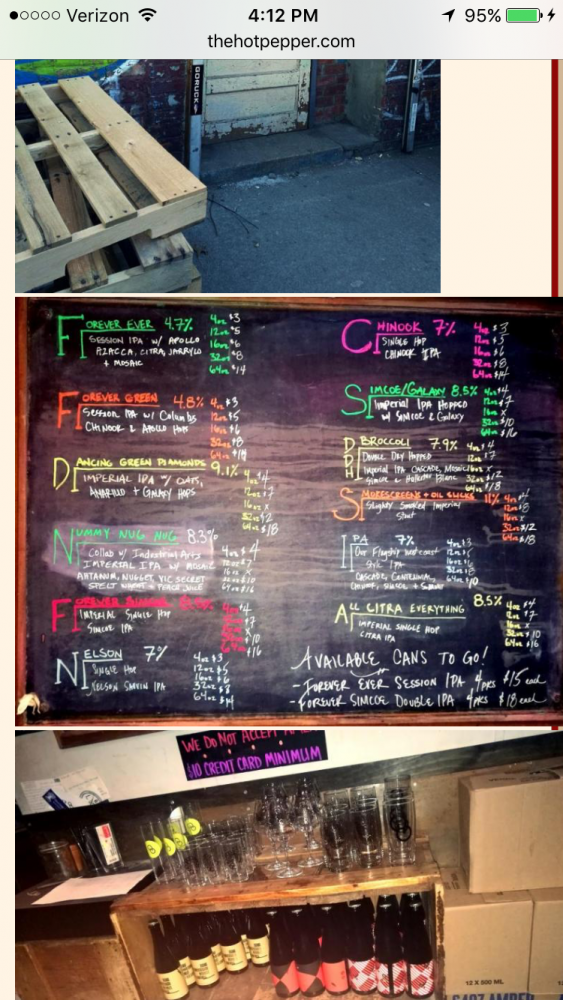 Verizon 4:12 PM 95%
thehotpepper.com
GORUCK
FOREVER EVER 4.7%
SESSION IPA W/ APOLLO
AZACCA, CITRA, JARRYLO
+ MOSAIC
4oz $3
12oz $5
16oz $6
32oz $8
64oz $14
FOREVER GREEN 4.8%
SESSION IPA W/ Columbus
CHINOOK & APOLLO HOPS
4oz $3
12oz $5
16oz $6
32oz $8
64oz $14
DANCING GREEN DIAMONDS 9.1%
IMPERIAL IPA W/ OATS,
AMARILLO + GALAXY HOPS
4oz $4
12oz $7
16oz X
64oz $18
NUMMY NUG NUG 8.3%
Collab w/ Industrial Arts
IMPERIAL IPA W/ MOSAIC
AHTANUM, NUGGET VIC SECRET
4oz $4
12oz $7
16oz X
64oz $16
IMPERIAL SINGLE HOP
SIMCOE IPA
4oz $4
$7
X
$10
$16
NELSON 7%
SINGLE HOP
NELSON SAUVIN IPA
4oz $3
12oz $5
16oz $6
32oz $8
64oz $14
CHINOOK 7%
SINGLE HOP
CHINOOK IPA
4oz $3
12oz $5
16oz $6
32oz $8
64oz $14
SIMCOE/GALAXY 8.5%
Imperial IPA HOPPED
W/ SIMCOE & GALAXY
4oz $4
12oz $7
16oz X
32oz $10
64oz $16
DDH BROCCOLI 7.9%
Double Dry Hopped
Imperial IPA CASCADE, Mosaic
Simcoe & Hallertau Blanc
4oz $4
12oz $7
16oz X
32oz $12
64oz $18
SMOKESCREENS + OIL SLICKS 11%
Slightly Smoked Imperial
Stout
4oz $4
12oz $8
16oz X
32oz $12
64oz $18
IPA 7%
Our Flagship West coast
Style IPA
CASCADE, CENTENNIAL,
4oz $3
12oz $5
16oz $6
32oz $8
ALL CITRA EVERYTHING 8.5%
IMPERIAL SINGLE HOP
CITRA IPA
4oz $4
12oz $7
16oz X
32oz $10
64oz $16
AVAILABLE CANS TO GO!
- FOREVER EVER SESSION IPA 4pks $15 each
- FOREVER SIMCOE DOUBLE IPA 4pks $18 each
WE DO NOT ACCEPT
$10 CREDIT CARD MINIMUM
12 X 500 ML